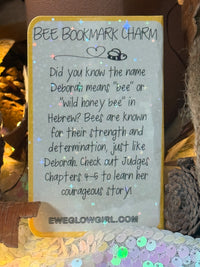 BEE BOOKMARK CHARM
Did you know the name
Deborah means "bee" or
"wild honey bee" in
Hebrew? Bees are known
for their strength and
determination, just like
Deborah. Check out Judges
Chapters 4-5 to learn her
courageous story!
EWEGLOWGIRL.COM